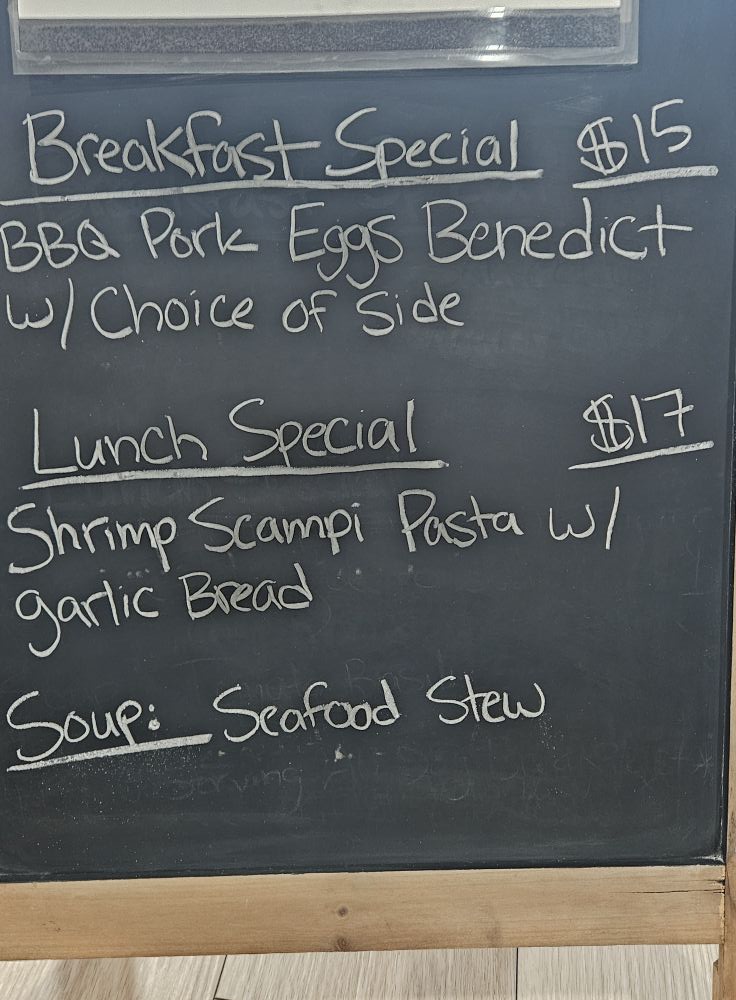 Breakfast Special $15
BBQ Pork Eggs Benedict
w/ Choice of Side
Lunch Special $17
Shrimp Scampi Pasta w/
garlic Bread
Soup: Seafood Stew